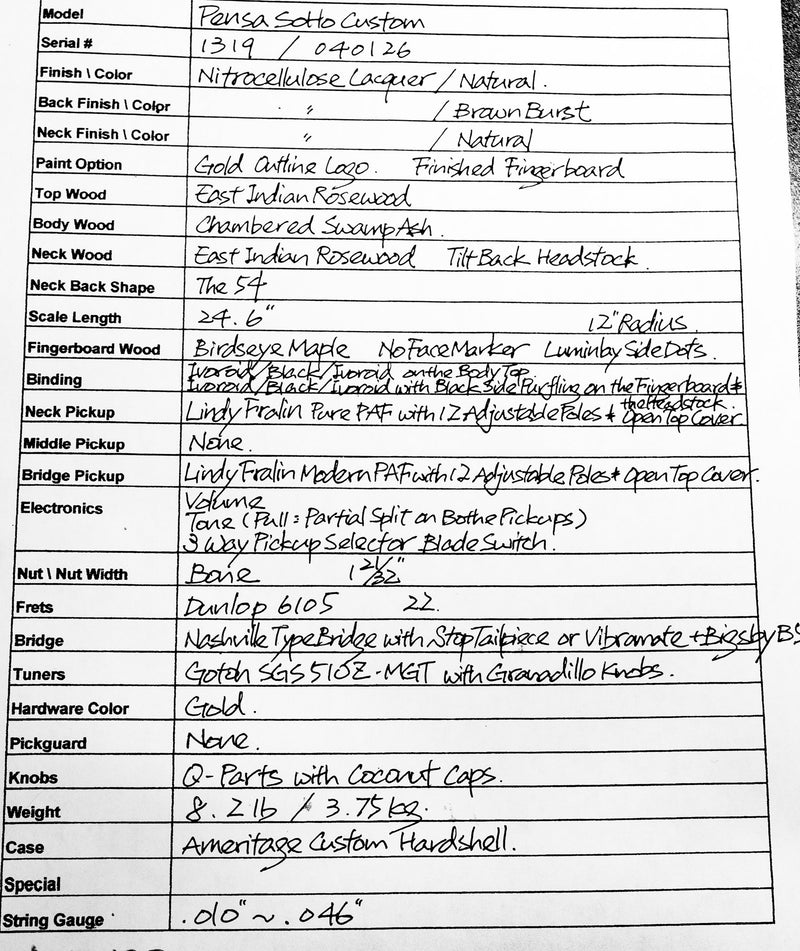 Model Pensa Sotto Custom
Serial # 1319 / 040126
Finish \ Color Nitrocellulose Lacquer / Natural.
Back Finish \ Color 〃 / Brown Burst
Neck Finish \ Color 〃 / Natural
Paint Option Gold Outline Logo. Finished Fingerboard
Top Wood East Indian Rosewood
Body Wood Chambered Swamp Ash.
Neck Wood East Indian Rosewood Tilt Back Headstock.
Neck Back Shape The 54
Scale Length 24.6" 12" Radius.
Fingerboard Wood Birdseye Maple No Face Marker Luminlay Side Dots.
Binding Ivoroid/Black/Ivoroid on the Body Top
Ivoroid/Black/Ivoroid with Black Side Purfling on the Fingerboard &
the Headstock.
Neck Pickup Lindy Fralin Pure PAF with 12 Adjustable Poles & Open Top Cover.
Middle Pickup None.
Bridge Pickup Lindy Fralin Modern PAF with 12 Adjustable Poles & Open Top Cover.
Electronics Volume
Tone (Pull = Partial Split on Bothe Pickups)
3 Way Pickup Selector Blade Switch.
Nut \ Nut Width Bone 1 21/32"
Frets Dunlop 6105 22.
Bridge Nashville Type Bridge with Stop Tailpiece or Vibramate + Bigsby B5
Tuners Gotoh SGS510Z-MGT with Granadillo Knobs.
Hardware Color Gold.
Pickguard None.
Knobs Q-Parts with Coconut Caps.
Weight 8.2 lb / 3.75 kg.
Case Ameritage Custom Hardshell.
Special
String Gauge .010" ~ .046"